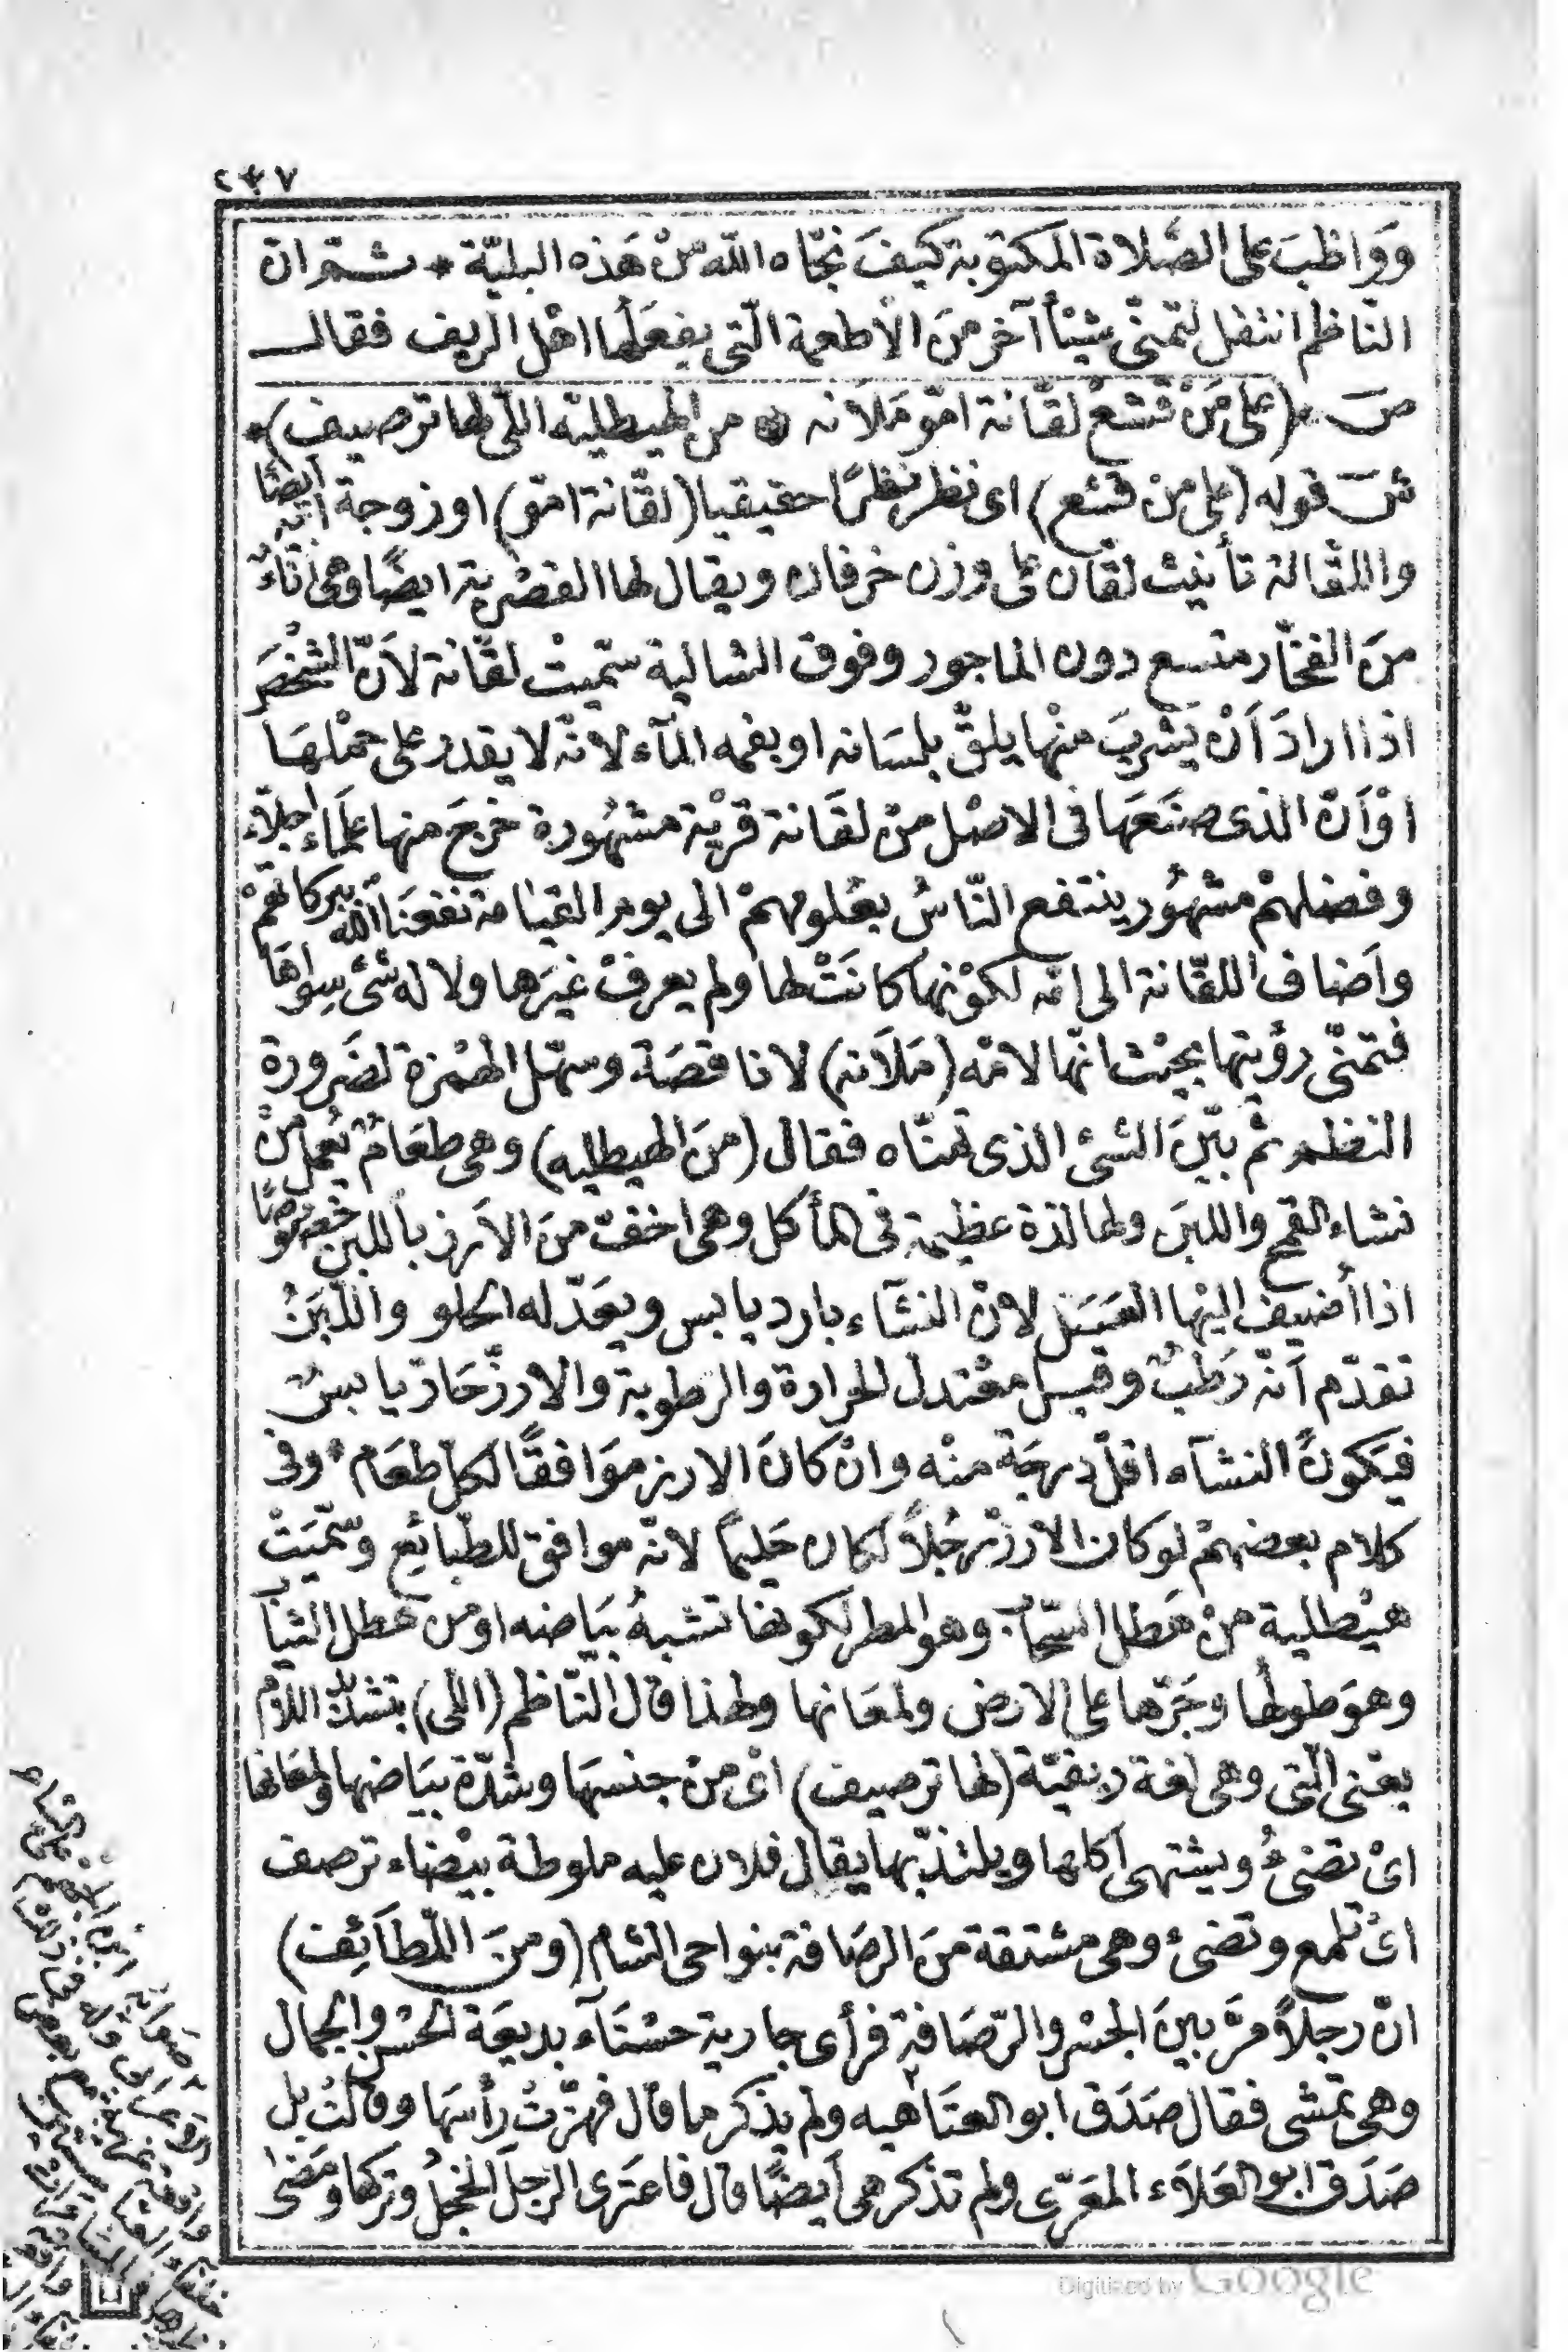 ٢٤٧
وَوَاظبَ على الصَّلاة المكتوبة كيفَ نجّاه الله منْ هَذه البليّة * شم ان
النّاظم انتقل لتمنّى شيئًا آخر منَ الأطعمة الّتى يفعَلها اهْل الريف فقال
صَ *(على مَنْ قشعْ لقّانة امّو مَلآنه * من الهيطليه اللّى لها ترصيف)*
شَ قوله (على منْ قشع) اى نظر نظرًا حقيقيا (لقّانة امّو) او زوجة ابيه ايضًا
واللقّانة تأنيث لقّان على وزن خرفان ويقال لها القصْرية ايضًا وهى اناءٌ
منَ الفخّار متسع دون الماجور وفوق الشالية سمّيتْ لقّانة لأنّ الشخصَ
اذا ارادَ اَنْ يَشْربَ منْها يلقّ بلسَانه او بفمه المآء لانّه لا يقدر على حمْلهَا
اوْ اَنّ الذى صنَعَها فى الاصْل منْ لقَانة قرْية مشهُورة خرجَ منها علماءٌ اجلاّء
وفضلهمْ مشهُور ينتفع النّاسُ بعُلومهمْ الى يوم القيامة نفعنَا الله ببركاتهمْ
واَضاف اللقّانة الى امّه لكوْنها كانَتْ لها ولم يعرفْ غيَرها ولا له شئ سِواهَا
فتمنّى رؤيتها بحيْث انّها لامّه (مَلآنه) لا ناقصَة وسهّل الهمْزة لضَرورة
النظم ثم بيّنَ الشئ الذى تمنّاه فقال (منَ الهيطليه) وهى طعَامٌ يُعمل منْ
نشاء القمح واللبن ولها لذة عظيمة فى المأكل وهى اخفّ منَ الاَرز باللبن خصوصًا
اذا اُضيف اليْها العسَل لانّ النشآء بارد يابس ويعَدّله الحلو واللّبَنُ
تقدّم اَنّه رَطْبٌ وقيل معْتدل للحرارة والرطوبة والارزّ حَارّ يا بسٌ
فيَكونُ النشآء اقلّ درجَة منْه وانْ كانَ الارز موَافقًا لكل طعَام * وفى
كلام بعضهمْ لو كان الاَرزّ رجُلاً لكان حَليمًا لانّه موافق للطّبائع وسمّيَتْ
هيْطلية منْ هَطل السّحَاب وهو المطر لكونها تشبهُ بيَاضه او من هطل الثياب
وهوَ طولُها وجَرّها على الارض ولمعَانها ولهذا قال النّاظم (اللى) بتشديد اللاّم
يعْنى الّتى وهى لغة ريفيّة (لها ترصيف) اىْ منْ جنسهَا وشدّة بيَاضها ولمعَانها
اىْ تضئُ ويشتهى اَكلها ويلتذّ بها يقال فلان عليه ملوطة بيْضاء ترصف
اىْ تلمع وتضئ وهى مشتقة منَ الرصَافة بنواحى الشام (ومنَ اللّطآئِف)
انّ رجلاً مرَّ بينَ الجسْر والرّصَافة فرأى جارية حسْنَآء بديعَة الحسْن والجمال
وهى تمْشى فقال صَدَق ابو العتَاهيه ولم يذكر ما قال فهزّتْ رأسَها وقالتْ بل
صَدَقَ ابو العَلاَء المعَرّى ولم تذكر هى اَيضًا قال فاعتَرى الرجلَ الخجلُ وتركها ومَضى
Digitized by Google